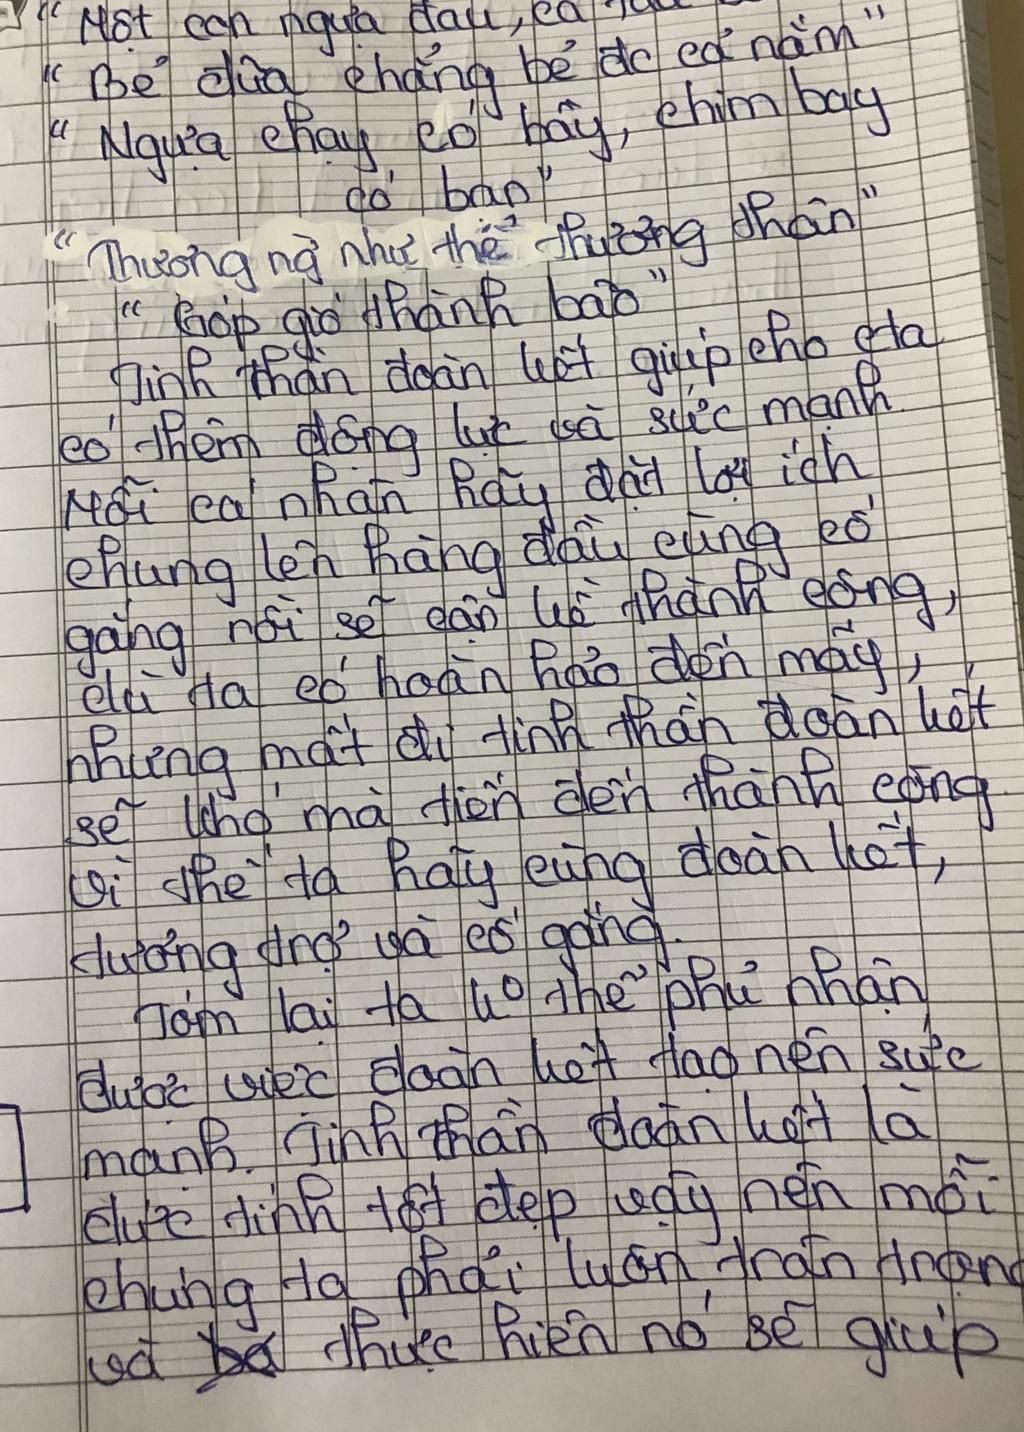 "Một con ngựa đau, cả
"Bẻ đũa chẳng bẻ đc cả nắm"
"Ngựa chạy có bầy, chim bay
có bạn"
"Thương ng` như thể thương thân"
"Góp gió thành bão"
Tinh thần đoàn kết giúp cho cta
có thêm động lực và sức mạnh.
Mỗi cá nhân hãy đặt lợi ích
chung lên hàng đầu cùng cố
gắng nỗi sẽ cận kề thành công,
dù ta có hoàn hảo đến mấy,
nhưng mất đi tinh thần đoàn kết
sẽ khó mà tiến đến thành công.
Vì thế ta hãy cùng đoàn kết,
tương trợ và cố gắng.
Tóm lại ta ko thể phủ nhận
được việc đoàn kết tạo nên sức
mạnh. Tinh thần đoàn kết là
đức tính tốt đẹp vậy nên mỗi
chúng ta phải luôn trân trọng
và thực hiện nó sẽ giúp